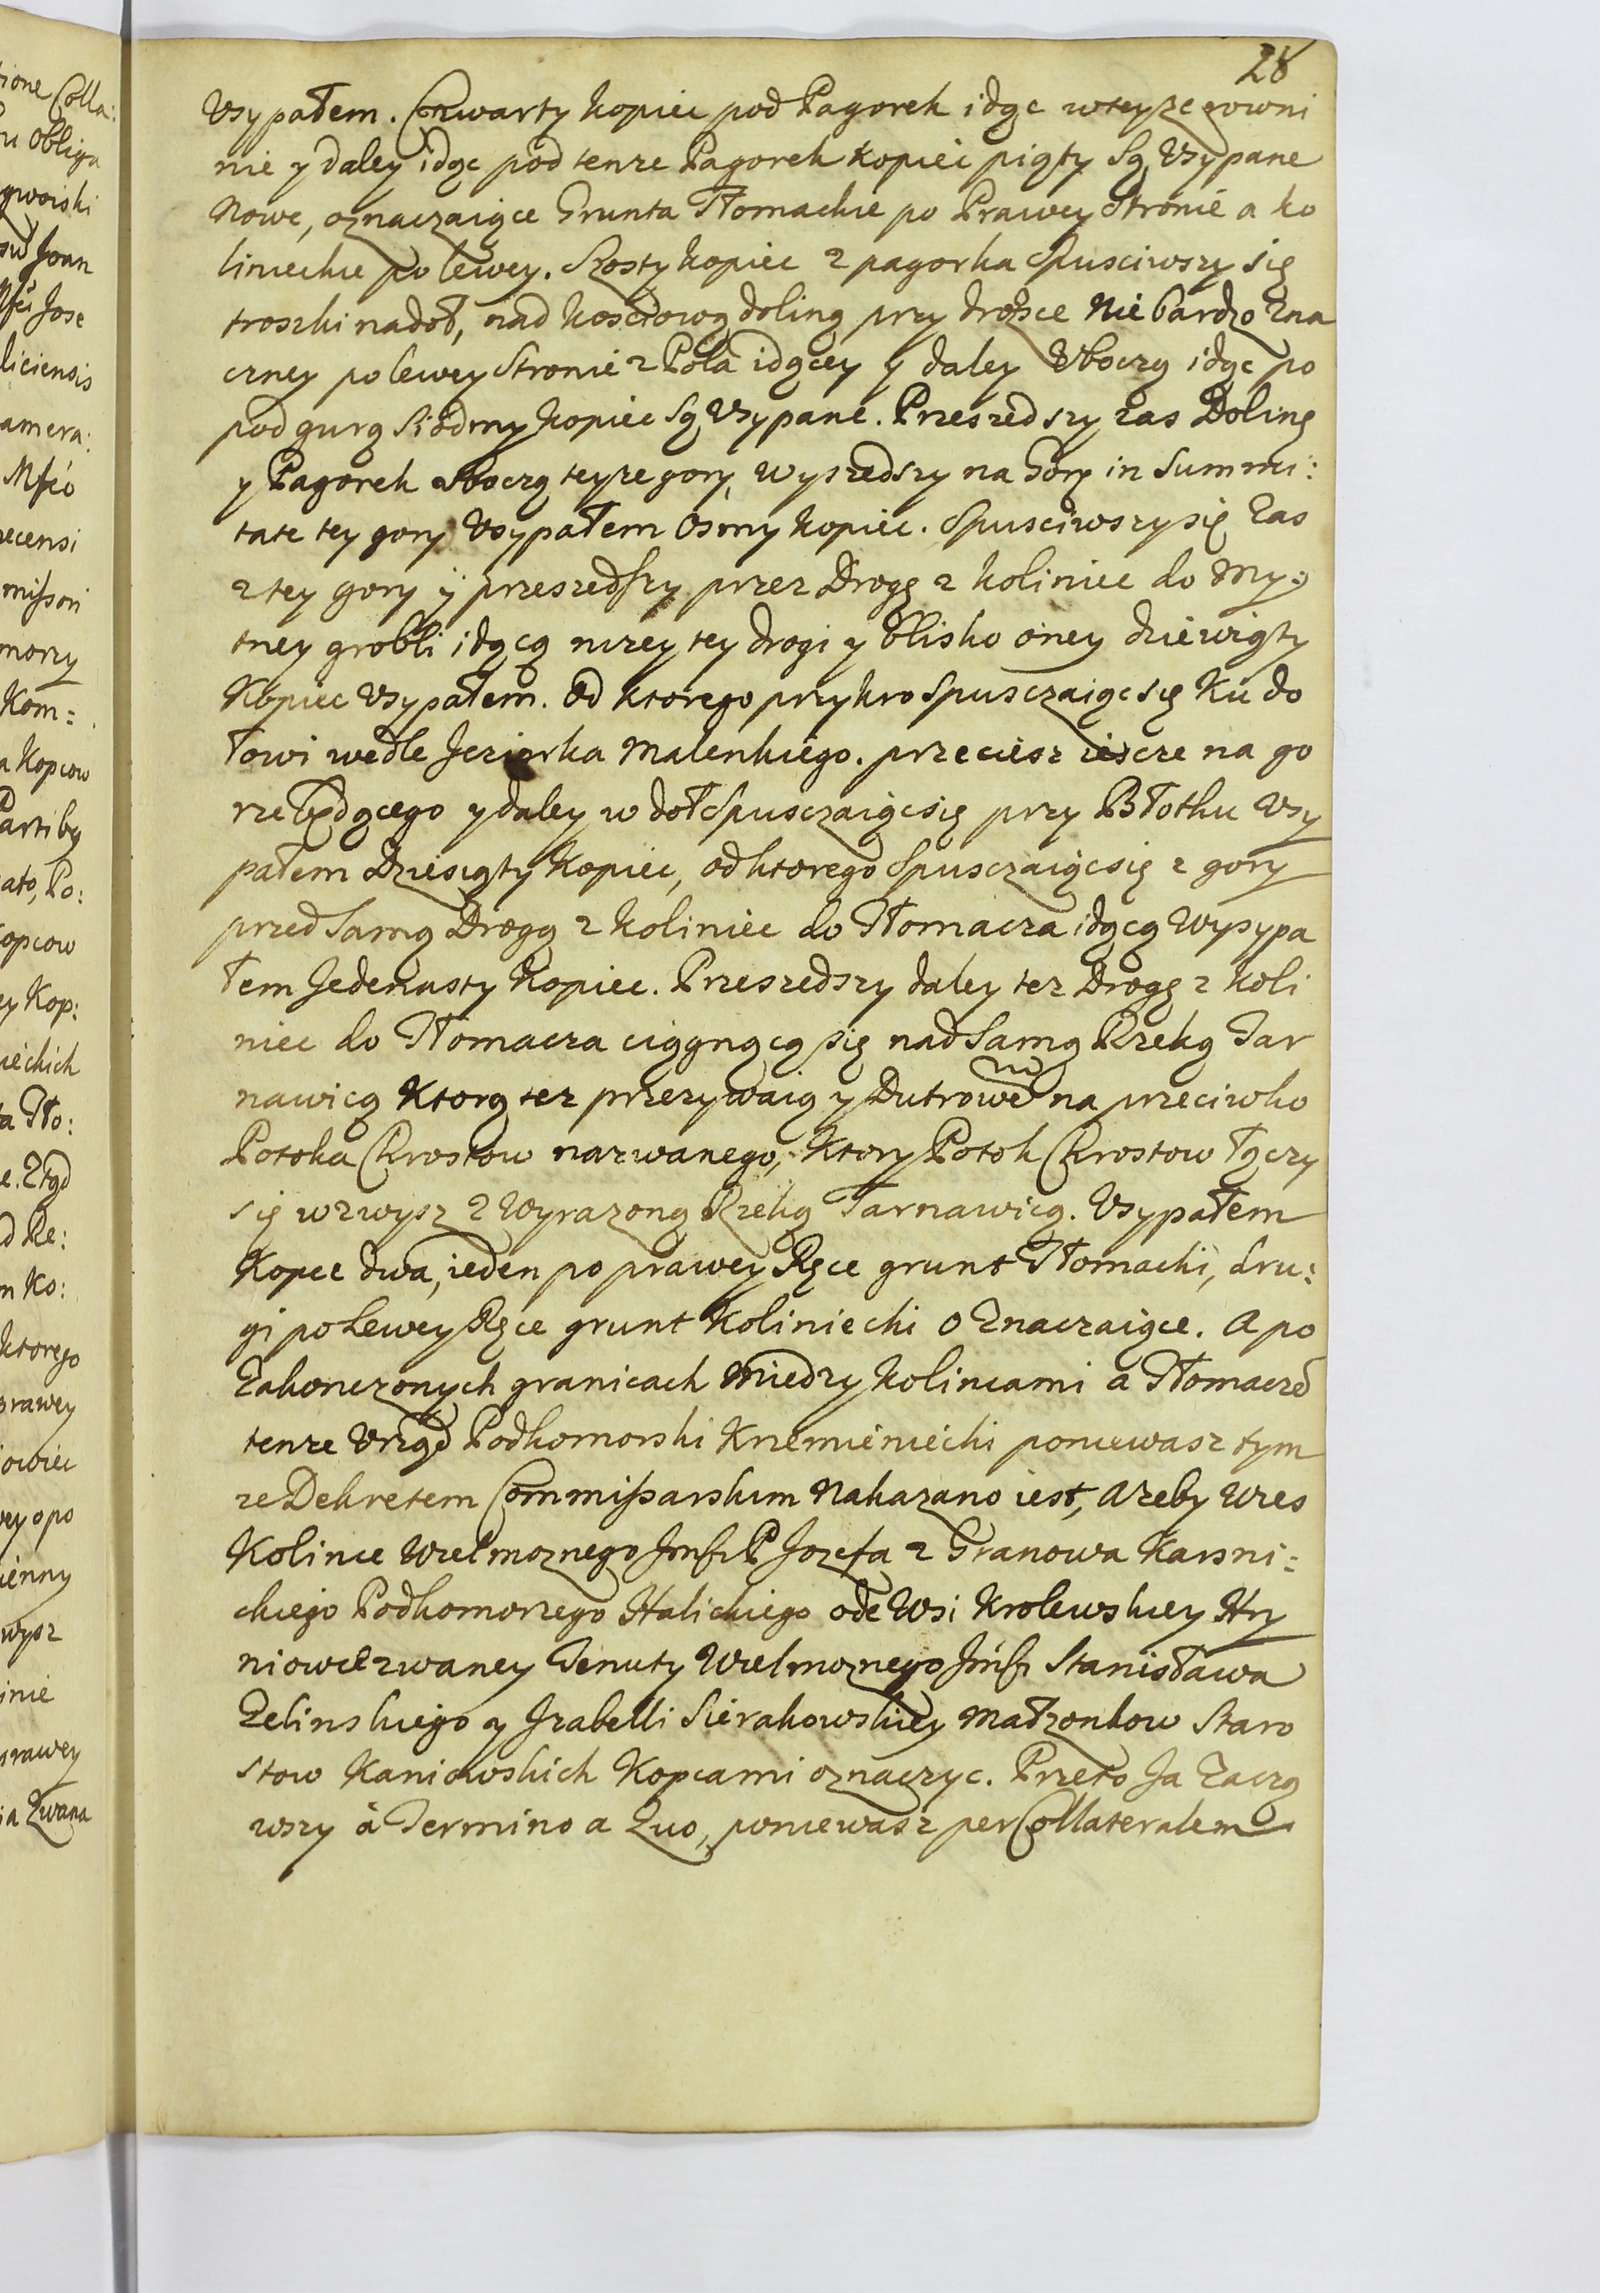 28
Usypałem. Czwarty kopiec pod Pagorek idąc w teyze rowni
nie y daley idąc pod tenze Pagorek kopiec piąty Są Usypane
Nowe, oznaczaiące Grunta Tłomackie po Prawey Stronie a ko
linieckie po lewey. Szosty kopiec z pagorka Spusciwszy się
troszki nadoł, nad kosciową doliną przy drożsce Nie bardzo Zna
czney po lewey Stronie z Pola idącey y daley Uboczą idąc po
pod gurą Siodmy kopiec Są Usypane. Przeszedszy zas Dolinę
y Pagorek Uboczą teyze gory, wyszedszy na Gorę in Summi:
tate tey gory Usypałem Osmy kopiec. Spusciwszy się Zas
z tey gory y przeszedszy przez Drogę z koliniec do My:
tney grobli idącą nizey tey drogi y blisko oney dziewiąty
Kopiec Usypałem. Od ktorego przykro Spusczaiąc się Ku do
łowi wedle Jeziorka Malenkiego. przeciesz iescze na go
rze będącego y daley w doł Spusczaiąc się przy Błotku Usy
pałem Dziesiąty Kopiec, od ktorego Spusczaiąc się z gory
przed Samą Drogą z koliniec do Tłomacza idącą Wysypa
łem Jedenasty Kopiec. Przeszedszy daley tez Drogę z koli
niec do Tłomacza ciągnącą się nad Samą Rzeką Tar
nawicą Ktorą tez przezywaią y Dutrowẽ na przeciwko
Potoka Chrostow nazwanego, Ktory Potok Chrostow łączy
się wzwysz z Wyrazoną Rzeką Tarnawicą. Usypałem
Kopce dwa, ieden po prawey Ręce grunt Tłomacki, dru:
gi po Lewey Ręce grunt Koliniecki OZnaczaiące. A po
Zakonczonych granicach Między Kolincami a Tłomaczẽ
tenze Urząd Podkomorski Krzemieniecki poniewasz tym
ze Dekretem Commissarskim Nakazano iest, Azeby Wies
Kolince Wielmoznego Jmści P Jozefa z Granowa Karsni:
ckiego Podkomorzego Halickiego ode Wsi Krolewskiey Hry
niowce zwaney Tenuty Wielmoznego Jmści Stanisława
Zelinskiego y Jzabelli Sierakowskiey Małzonkow Staro
stow Kaniowskich Kopcami oznaczyc. Przeto Ja Zaczą
wszy â Termino a Quo, poniewasz per Collateralem